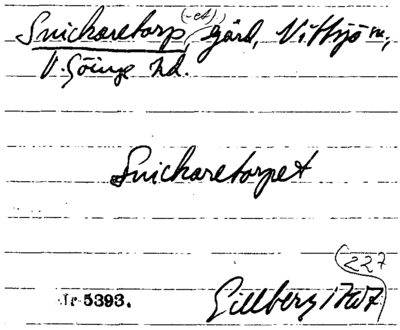 Snickaretorp (-et), gård, Vittsjö sn,
V. Göinge hd.
Snickaretorpet
227
Nr 5393. Gillberg 1767